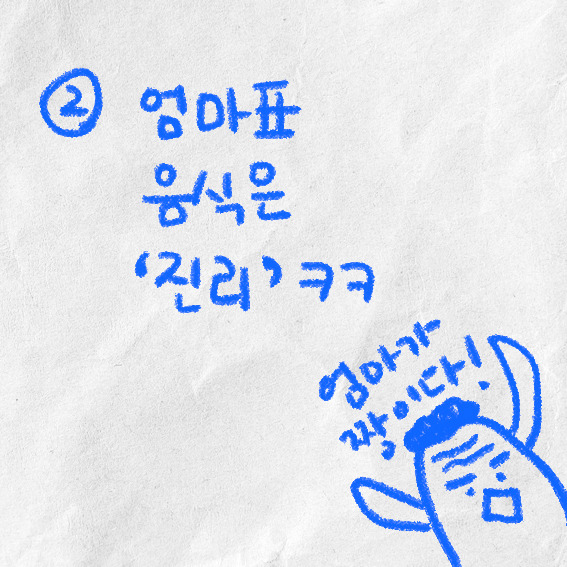 ② 엄마표
음식은
‘진리’ ㅋㅋ
엄마가
짱이다!